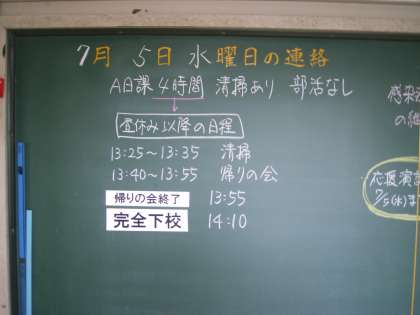 7月 5日 水曜日の連絡
A日課 4時間 清掃あり 部活なし
昼休み以降の日程
13:25～13:35 清掃
13:40～13:55 帰りの会
帰りの会終了 13:55
完全下校 14:10
感染
の継
応援演
7/5(水)